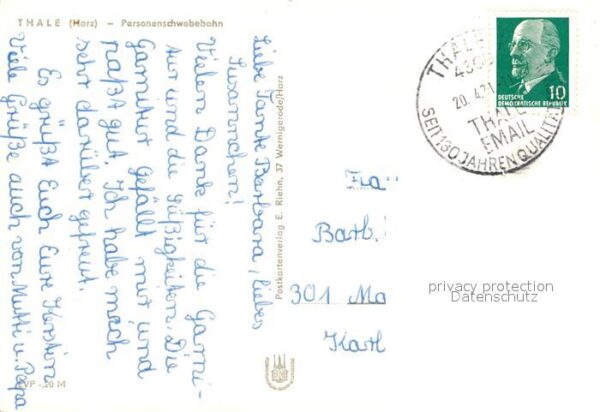 THALE (Harz) – Personenschwebebahn
Liebe Tante Barbara, liebes
Susannchen!
Vielen Dank für die Garni-
tur und die Süßigkeiten. Die
Garnitur gefällt mir und
paßt gut. Ich habe mich
sehr darüber gefreut.
Es grüßt Euch Eure Kerstin
Viele Grüße auch von Mutti u. Papa
Postkartenverlag E. Riehn, 37 Wernigerode/Harz
EVP -,20 M
THALE
20.4.71
THALE
EMAIL
SEIT 130 JAHREN QUALITÄT
10
DEUTSCHE
DEMOKRATISCHE REPUBLIK
Barb.
301 Ma
Karl
privacy protection
Datenschutz